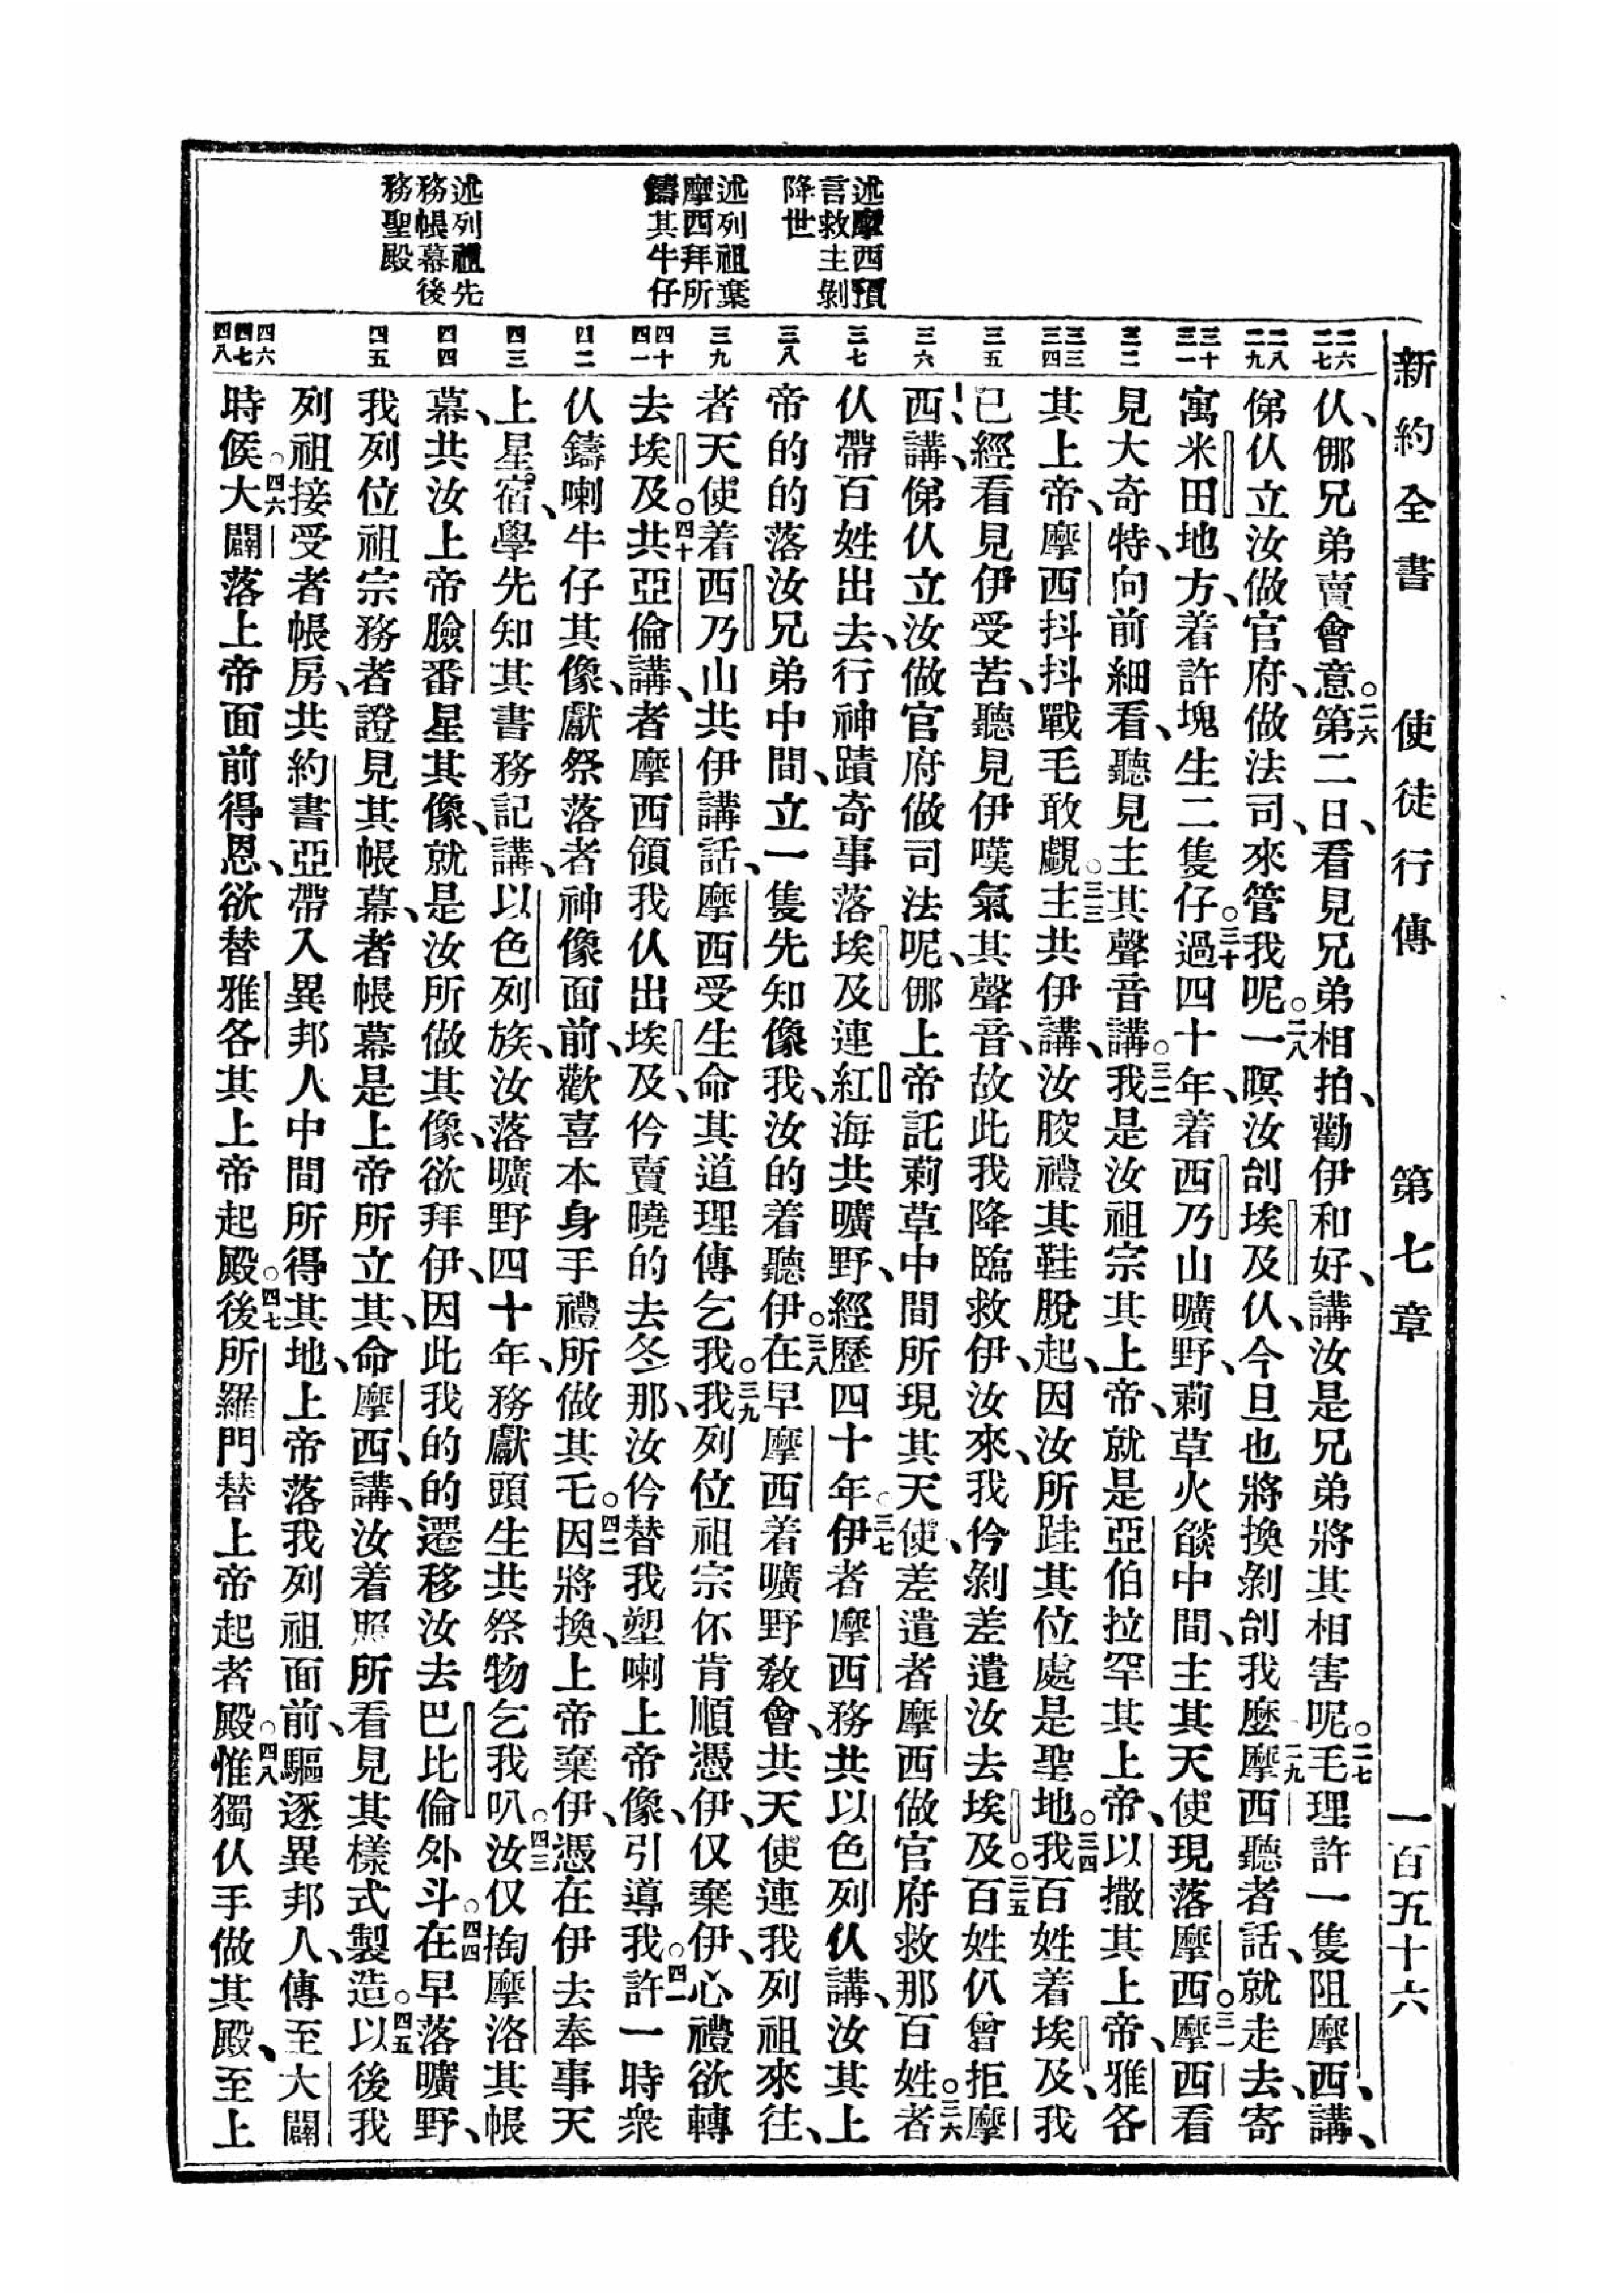 新約全書　使徒行傳　第七章　一百五十六
述摩西預
言救主剝
降世
述列祖棄
摩西拜所
鑄其牛仔
述列祖先
務帳幕後
務聖殿
二六
二七
二八
二九
三十
三一
三二
三三
三四
三五
三六
三七
三八
三九
四十
四一
四二
四三
四四
四五
四六
四七
四八
仈、倻兄弟賣會意。二六第二日、看見兄弟相拍、勸伊和好、講汝是兄弟將其相害呢。二七毛理許一隻阻摩西、講、
俤仈立汝做官府、做法司、來管我呢。二八一暝汝刣埃及仈、今旦也將換剝刣我麼。二九摩西聽者話、就走去、寄
寓米田地方、着許塊生二隻仔。三十過四十年、着西乃山曠野、莿草火燄中間、主其天使現落摩西。三一摩西看
見大奇特、向前細看、聽見主其聲音講。三二我是汝祖宗其上帝、就是亞伯拉罕其上帝、以撒其上帝、雅各
其上帝、摩西抖抖戰毛敢覷。三三主共伊講、汝骹禮其鞋脫起、因汝所跬其位處是聖地。三四我百姓着埃及、我
已經看見伊受苦、聽見伊嘆氣其聲音、故此我降臨救伊、汝來、我伶剝差遣汝去埃及。三五百姓仈曾拒摩
西、講、俤仈立汝做官府做司法呢、倻上帝託莿草中間所現其天使、差遣者摩西做官府救那百姓。三六者
仈帶百姓出去、行神蹟奇事落埃及連紅海共曠野、經歷四十年。三七伊者摩西務共以色列仈講、汝其上
帝的的落汝兄弟中間、立一隻先知像我、汝的着聽伊。三八在早摩西着曠野教會、共天使連我列祖來往、
者天使着西乃山共伊講話、摩西受生命其道理傳乞我。三九我列位祖宗伓肯順憑伊、仅棄伊、心禮欲轉
去埃及。四十共亞倫講、者摩西領我仈出埃及、伶賣曉的去冬那、汝伶替我塑喇上帝像、引導我。四一許一時衆
仈鑄喇牛仔其像、獻祭落者神像面前、歡喜本身手禮所做其乇。四二因將換、上帝棄伊、憑在伊去奉事天
上星宿、學先知其書務記講、以色列族、汝落曠野四十年、務獻頭生共祭物乞我叭。四三汝仅掏摩洛其帳
幕、共汝上帝臉番星其像、就是汝所做其像、欲拜伊、因此我的的遷移汝去巴比倫外斗。四四在早落曠野、
我列位祖宗務者證見其帳幕、者帳幕是上帝所立其、命摩西、講、汝着照所看見其樣式製造。四五以後我
列祖接受者帳房、共約書亞帶入異邦人中間所得其地、上帝落我列祖面前、驅逐異邦人、傳至大闢
時候。四六大闢落上帝面前得恩、欲替雅各其上帝起殿。四七後所羅門替上帝起者殿。四八惟獨仈手做其殿、至上